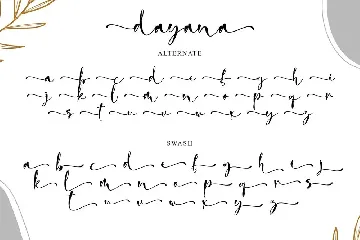 dayana
ALTERNATE
a b c d e f g h i
j k l m n o p q r
s t u v w x y z
SWASH
a b c d e f g h i j
k l m n o p q r s
t u v w x y z